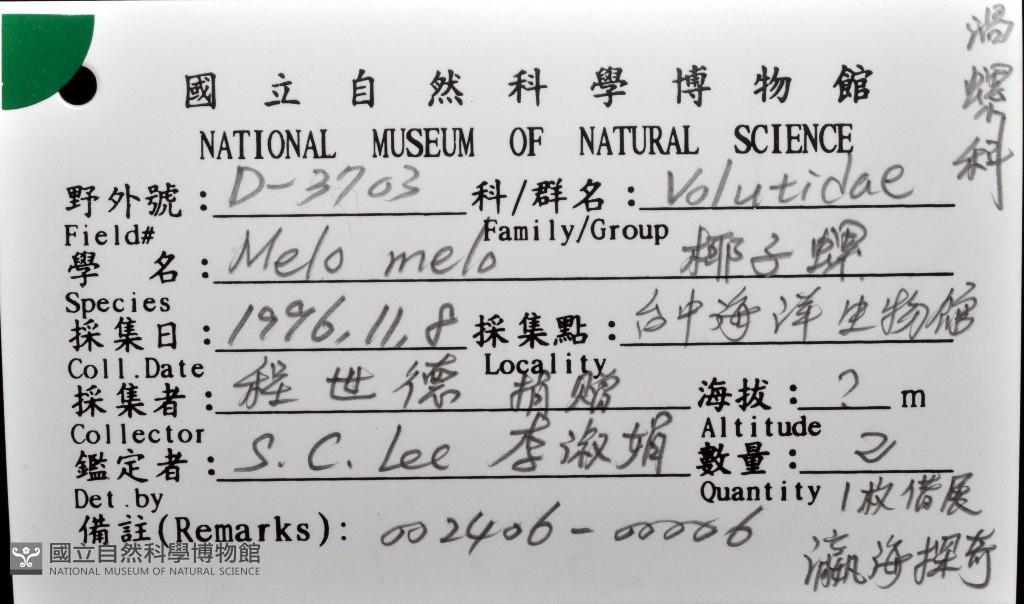 渦螺科
國立自然科學博物館
NATIONAL MUSEUM OF NATURAL SCIENCE
野外號：D-3703 科/群名：Volutidae
Field# Family/Group
學名：Melo melo 椰子螺
Species
採集日：1996.11.8 採集點：台中海洋生物館
Coll.Date Locality
採集者：程世德 捐贈 海拔：? m
Collector Altitude
鑑定者：S. C. Lee 李淑娟 數量：2
Det.by Quantity 1枚借展
備註(Remarks): 002406-00006 瀛海探奇
國立自然科學博物館
NATIONAL MUSEUM OF NATURAL SCIENCE